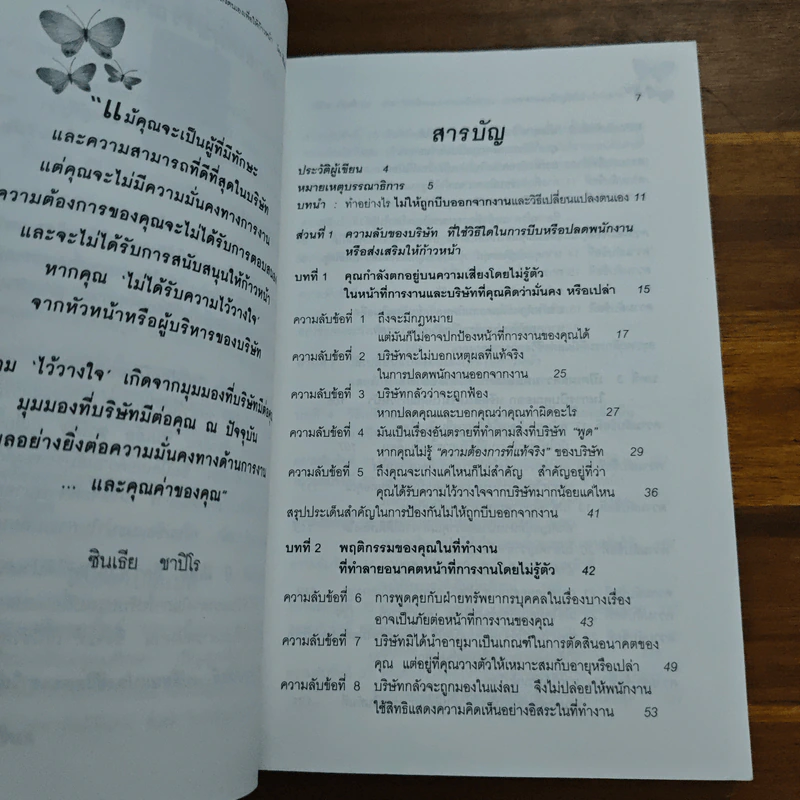 "แม้คุณจะเป็นผู้ที่มีทักษะ
และความสามารถที่ดีที่สุดในบริษัท
แต่คุณจะไม่มีความมั่นคงทางการงาน
ความต้องการของคุณจะไม่ได้รับการตอบสนอง
และจะไม่ได้รับการสนับสนุนให้ก้าวหน้า
หากคุณ 'ไม่ได้รับความไว้วางใจ'
จากหัวหน้าหรือผู้บริหารของบริษัท
'ไว้วางใจ' เกิดจากมุมมองที่บริษัทมีต่อคุณ
มุมมองที่บริษัทมีต่อคุณ ณ ปัจจุบัน
ผลอย่างยิ่งต่อความมั่นคงทางด้านการงาน
... และคุณค่าของคุณ"
ซินเธีย ชาปิโร
7
สารบัญ
ประวัติผู้เขียน 4
หมายเหตุบรรณาธิการ 5
บทนำ : ทำอย่างไร ไม่ให้ถูกบีบออกจากงานและวิธีเปลี่ยนแปลงตนเอง 11
ส่วนที่ 1 ความลับของบริษัท ที่ใช้วิธีใดในการบีบหรือปลดพนักงาน
หรือส่งเสริมให้ก้าวหน้า
บทที่ 1 คุณกำลังตกอยู่บนความเสี่ยงโดยไม่รู้ตัว
ในหน้าที่การงานและบริษัทที่คุณคิดว่ามั่นคง หรือเปล่า 15
ความลับข้อที่ 1 ถึงจะมีกฎหมาย
แต่มันก็ไม่อาจปกป้องหน้าที่การงานของคุณได้ 17
ความลับข้อที่ 2 บริษัทจะไม่บอกเหตุผลที่แท้จริง
ในการปลดพนักงานออกจากงาน 25
ความลับข้อที่ 3 บริษัทกลัวว่าจะถูกฟ้อง
หากปลดคุณและบอกคุณว่าคุณทำผิดอะไร 27
ความลับข้อที่ 4 มันเป็นเรื่องอันตรายที่ทำตามสิ่งที่บริษัท "พูด"
หากคุณไม่รู้ "ความต้องการที่แท้จริง" ของบริษัท 29
ความลับข้อที่ 5 ถึงคุณจะเก่งแค่ไหนก็ไม่สำคัญ สำคัญอยู่ที่ว่า
คุณได้รับความไว้วางใจจากบริษัทมากน้อยแค่ไหน 36
สรุปประเด็นสำคัญในการป้องกันไม่ให้ถูกบีบออกจากงาน 41
บทที่ 2 พฤติกรรมของคุณในที่ทำงาน
ที่ทำลายอนาคตหน้าที่การงานโดยไม่รู้ตัว 42
ความลับข้อที่ 6 การพูดคุยกับฝ่ายทรัพยากรบุคคลในเรื่องบางเรื่อง
อาจเป็นภัยต่อหน้าที่การงานของคุณ 43
ความลับข้อที่ 7 บริษัทมิได้นำอายุมาเป็นเกณฑ์ในการตัดสินอนาคตของ
คุณ แต่อยู่ที่คุณวางตัวให้เหมาะสมกับอายุหรือเปล่า 49
ความลับข้อที่ 8 บริษัทกลัวจะถูกมองในแง่ลบ จึงไม่ปล่อยให้พนักงาน
ใช้สิทธิแสดงความคิดเห็นอย่างอิสระในที่ทำงาน 53